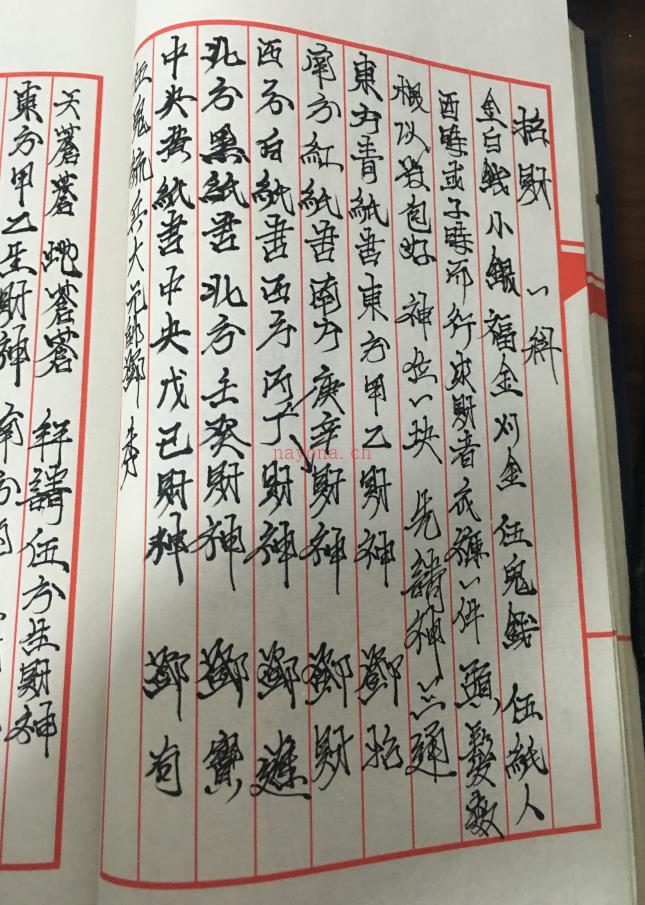 招財一科
金白錢小銀福金刈金伍鬼錢伍紙人
酉時或子時所行求財者衣褲一件頭髮數
根以發包好神位一块先請神一通
東方青紙書東方甲乙財神鄧招
南方紅紙書南方庚辛財神鄧財
西方白紙書西方丙丁財神鄧進
北方黑紙書北方壬癸財神鄧寶
中央黄紙書中央戊己財神鄧
五鬼統兵大元帥鄧
天蒼蒼地蒼蒼拜請伍方生財神
東方甲乙生財神南方
nayona.ch